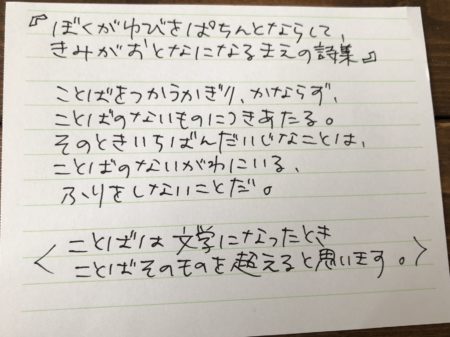 『ぼくがゆびをぱちんとならして、
きみがおとなになるまえの詩集』
ことばをつかうかぎり、かならず、
ことばのないものにつきあたる。
そのときいちばんだいじなことは、
ことばのないがわにいる、
ふりをしないことだ。
〈ことばは文学になったとき
ことばそのものを超えると思います。〉